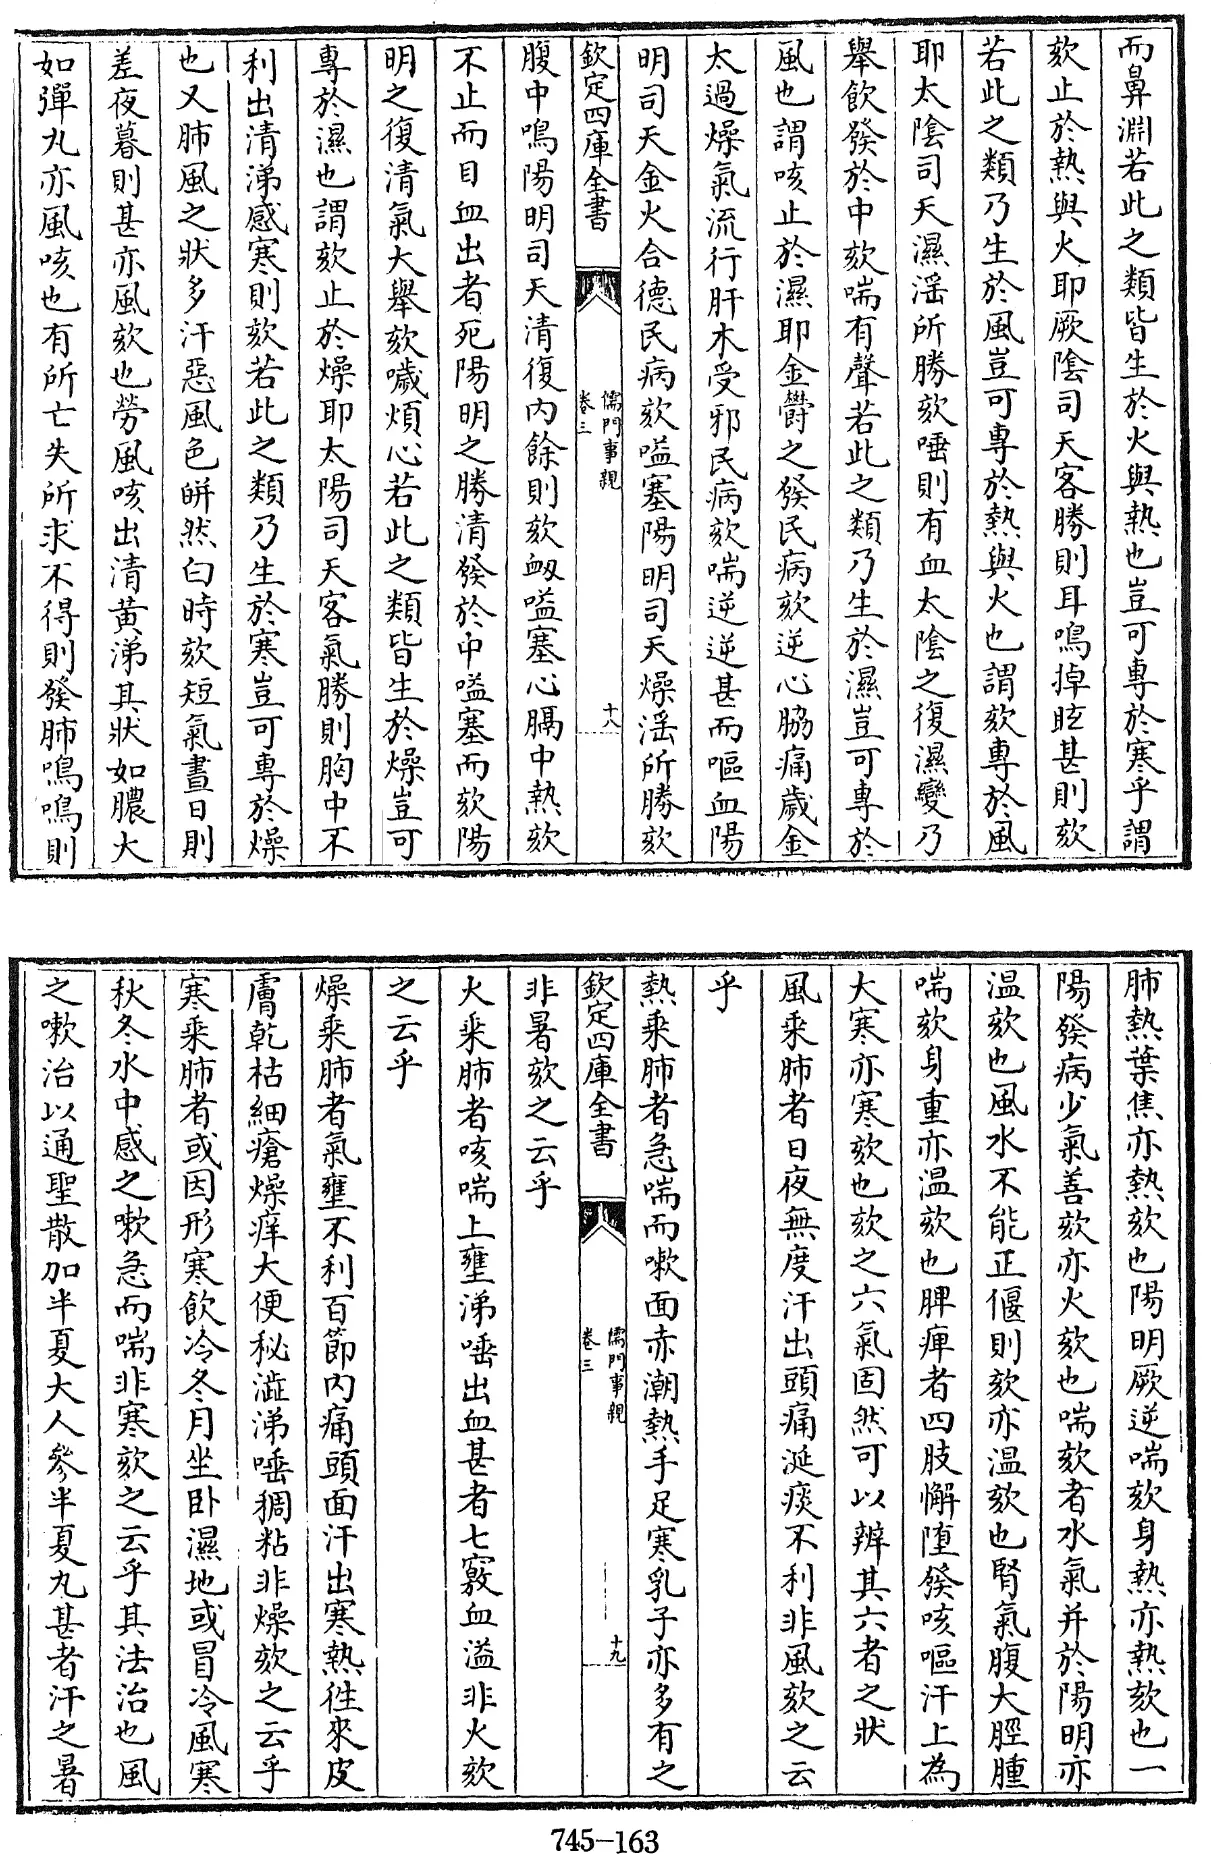 而鼻淵若此之類皆生於火與熱也豈可專於寒乎謂
欬止於熱與火耶厥陰司天客勝則耳鳴掉眩甚則欬
若此之類乃生於風豈可專於熱與火也謂欬專於風
耶太陰司天濕淫所勝欬唾則有血太陰之復濕變乃
舉飲發於中欬喘有聲若此之類乃生於濕豈可專於
風也謂咳止於濕耶金欝之發民病欬逆心脇痛歲金
太過燥氣流行肝木受邪民病欬喘逆逆甚而嘔血陽
明司天金火合德民病欬嗌塞陽明司天燥淫所勝欬
欽定四庫全書
儒門事親
卷三
十八
腹中鳴陽明司天清復内餘則欬衂嗌塞心膈中熱欬
不止而目血出者死陽明之勝清發於中嗌塞而欬陽
明之復清氣大舉欬噦煩心若此之類皆生於燥豈可
專於濕也謂欬止於燥耶太陽司天客氣勝則胸中不
利出清涕感寒則欬若此之類乃生於寒豈可專於燥
也又肺風之狀多汗惡風色皏然白時欬短氣晝日則
差夜暮則甚亦風欬也勞風咳出清黃涕其狀如膿大
如彈丸亦風咳也有所亡失所求不得則發肺鳴鳴則
肺熱葉焦亦熱欬也陽明厥逆喘欬身熱亦熱欬也一
陽發病少氣善欬亦火欬也喘欬者水氣并於陽明亦
温欬也風水不能正偃則欬亦温欬也腎氣腹大脛腫
喘欬身重亦温欬也脾痺者四肢懈墮發咳嘔汗上為
大寒亦寒欬也欬之六氣固然可以辨其六者之狀
風乘肺者日夜無度汗出頭痛涎痰不利非風欬之云
乎
熱乘肺者急喘而嗽面赤潮熱手足寒乳子亦多有之
欽定四庫全書
儒門事親
卷三
十九
非暑欬之云乎
火乘肺者咳喘上壅涕唾出血甚者七竅血溢非火欬
之云乎
燥乘肺者氣壅不利百節内痛頭面汗出寒熱徃來皮
膚乾枯細瘡燥痒大便秘澁涕唾稠粘非燥欬之云乎
寒乘肺者或因形寒飲冷冬月坐卧濕地或冒冷風寒
秋冬水中感之嗽急而喘非寒欬之云乎其法治也風
之嗽治以通聖散加半夏大人參半夏丸甚者汗之暑
745-163